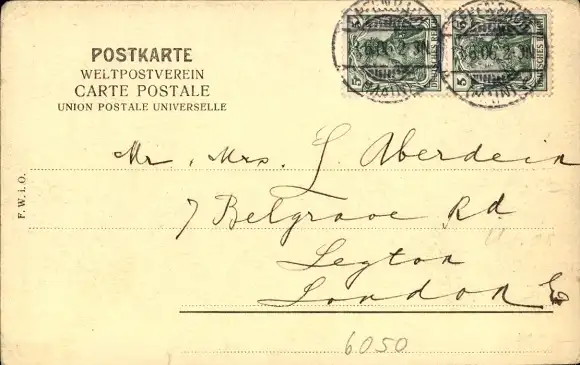 POSTKARTE
WELTPOSTVEREIN
CARTE POSTALE
UNION POSTALE UNIVERSELLE
5 5
DEUTSCHES
(MAIN) (MAIN)
F. W. i. O.
Mr, Mrs. L. Aberdein
7 Belgrave Rd
Leyton
London E
6050